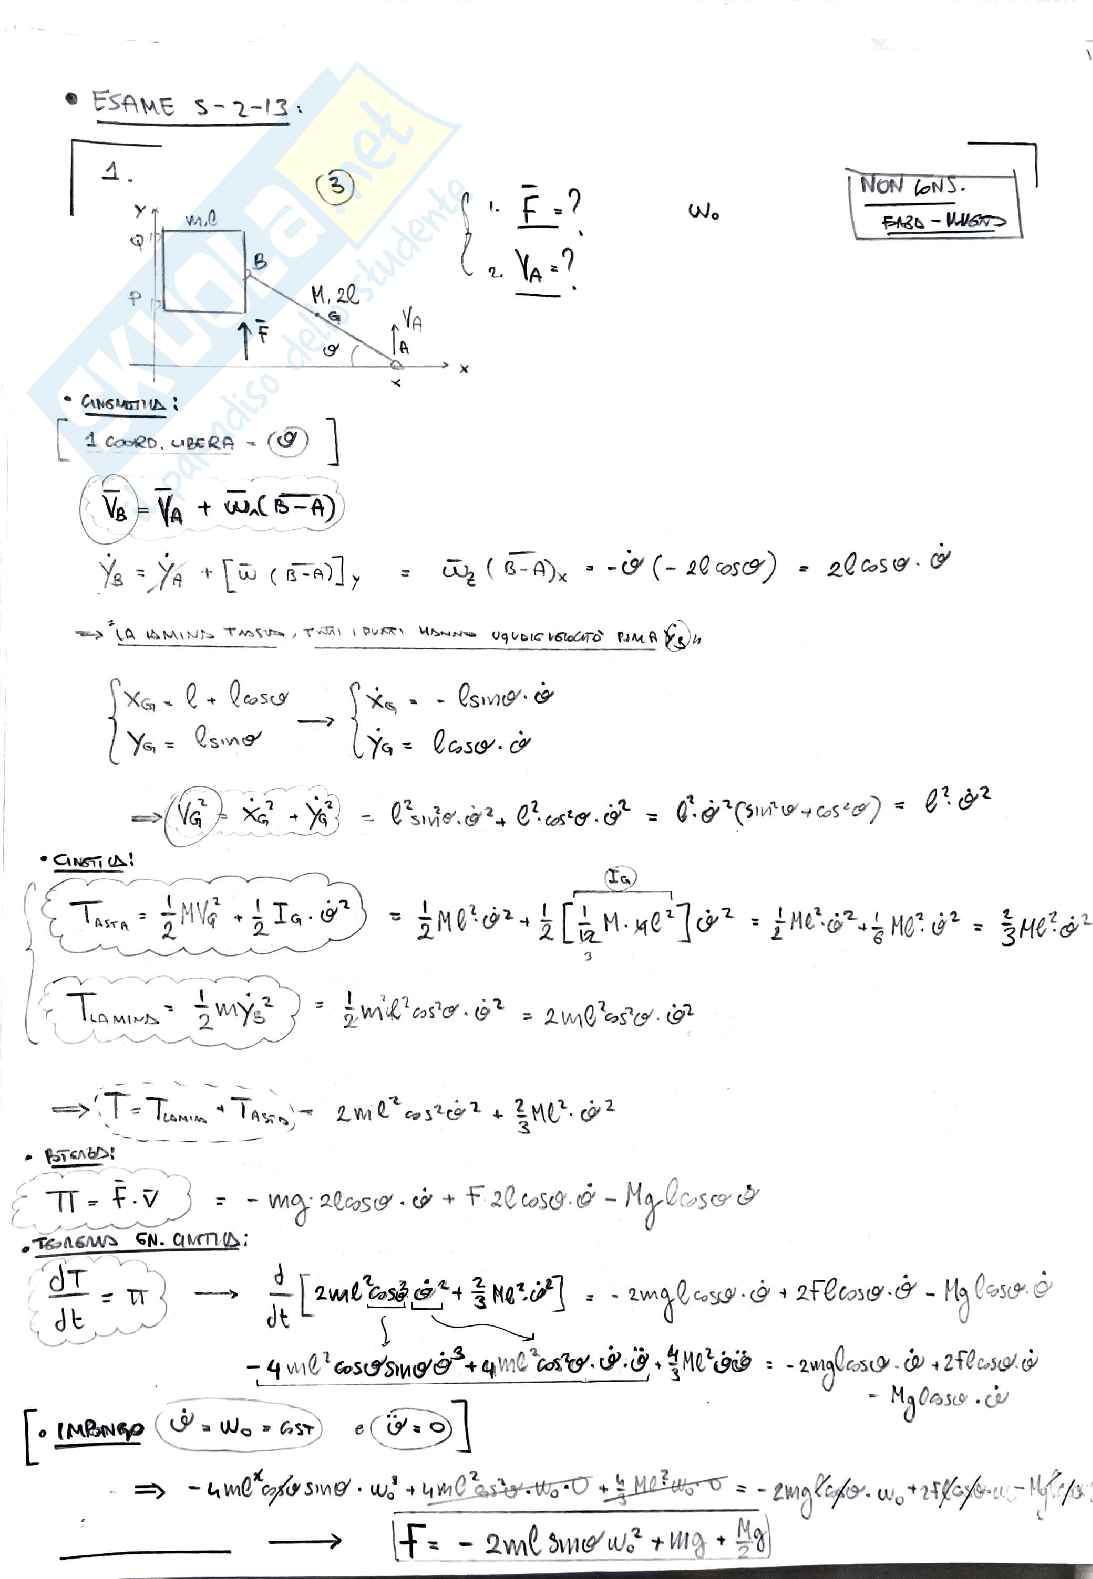 • ESAME 5-2-13:
1.
3
1. F̄ = ?
2. V_A = ?
ω₀
NON CONS.
Y
Q
m, l
B
P
M, 2l
G
F̄
V_A
θ
A
x
x
SKUOLA.net
paradiso dello studente
• CINEMATICA:
[1 COORD. LIBERA - (θ)]
V̄_B = V̄_A + ω̄∧(B-A)
Ẏ_B = Ẏ_A + [ω̄ (B-A)]_Y = ω̄_z (B-A)_x = -θ̇ (-2l cosθ) = 2l cosθ · θ̇
⇒ "LA LAMINA TRASLA, TUTTI I PUNTI HANNO UGUALE VELOCITÀ PARI A Ẏ_B"
{ X_G = l + l cosθ → { Ẋ_G = - l sinθ · θ̇
Y_G = l sinθ Ẏ_G = l cosθ · θ̇
⇒ V_G² = Ẋ_G² + Ẏ_G² = l² sin²θ · θ̇² + l² · cos²θ · θ̇² = l² · θ̇² (sin²θ + cos²θ) = l² · θ̇²
• CINETICA:
I_G
T_ASTA = 1/2 M V_G² + 1/2 I_G · θ̇² = 1/2 M l² · θ̇² + 1/2 [1/12 M · 4l²] θ̇² = 1/2 M l² · θ̇² + 1/6 M l² · θ̇² = 2/3 M l² · θ̇²
3
T_LAMINA = 1/2 m Ẏ_B² = 1/2 m 4l² cos²θ · θ̇² = 2ml² cos²θ · θ̇²
⇒ T = T_LAMINA + T_ASTA = 2ml² cos² θ̇² + 2/3 M l² · θ̇²
• POTENZA:
Π = F̄ · v̄ = - mg · 2l cosθ · θ̇ + F 2l cosθ · θ̇ - Mg l cosθ θ̇
• TEOREMA EN. CINETICA:
dT/dt = Π → d/dt [2ml² cos²θ θ̇² + 2/3 M l² · θ̇²] = - 2mg l cosθ · θ̇ + 2F l cosθ · θ̇ - Mg l cosθ · θ̇
- 4ml² cosθ sinθ θ̇³ + 4ml² cos²θ · θ̇ · θ̈ + 4/3 M l² θ̇ θ̈ = - 2mg l cosθ · θ̇ + 2F l cosθ · θ̇
- Mg l cosθ · θ̇
[• IMPONGO θ̇ = ω₀ = COST e θ̈ = 0]
⇒ - 4ml² cosθ sinθ · ω₀³ + 4ml² cos²θ · ω₀ · 0 + 4/3 M l² · ω₀ · 0 = - 2mg l cosθ · ω₀ + 2F l cosθ · ω₀ - Mg l cosθ
→ F = - 2ml sinθ ω₀² + mg + Mg/2